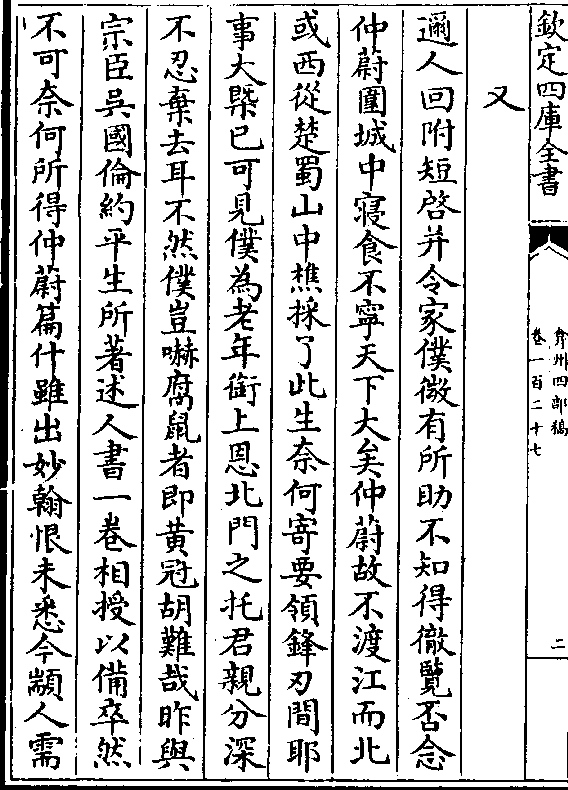 欽定四庫全書
弇州四部稿
卷一百二十七
二
又
邇人回附短啓并令家僕微有所助不知得徹覽否念
仲蔚圍城中寢食不寧天下大矣仲蔚故不渡江而北
或西從楚蜀山中樵採了此生奈何寄要領鋒刃間耶
事大槩已可見僕為老年銜上恩北門之托君親分深
不忍棄去耳不然僕豈嚇腐鼠者即黄冠胡難哉昨與
宗臣吳國倫約平生所著述人書一卷相授以備卒然
不可奈何所得仲蔚篇什雖出妙翰恨未悉今顓人需